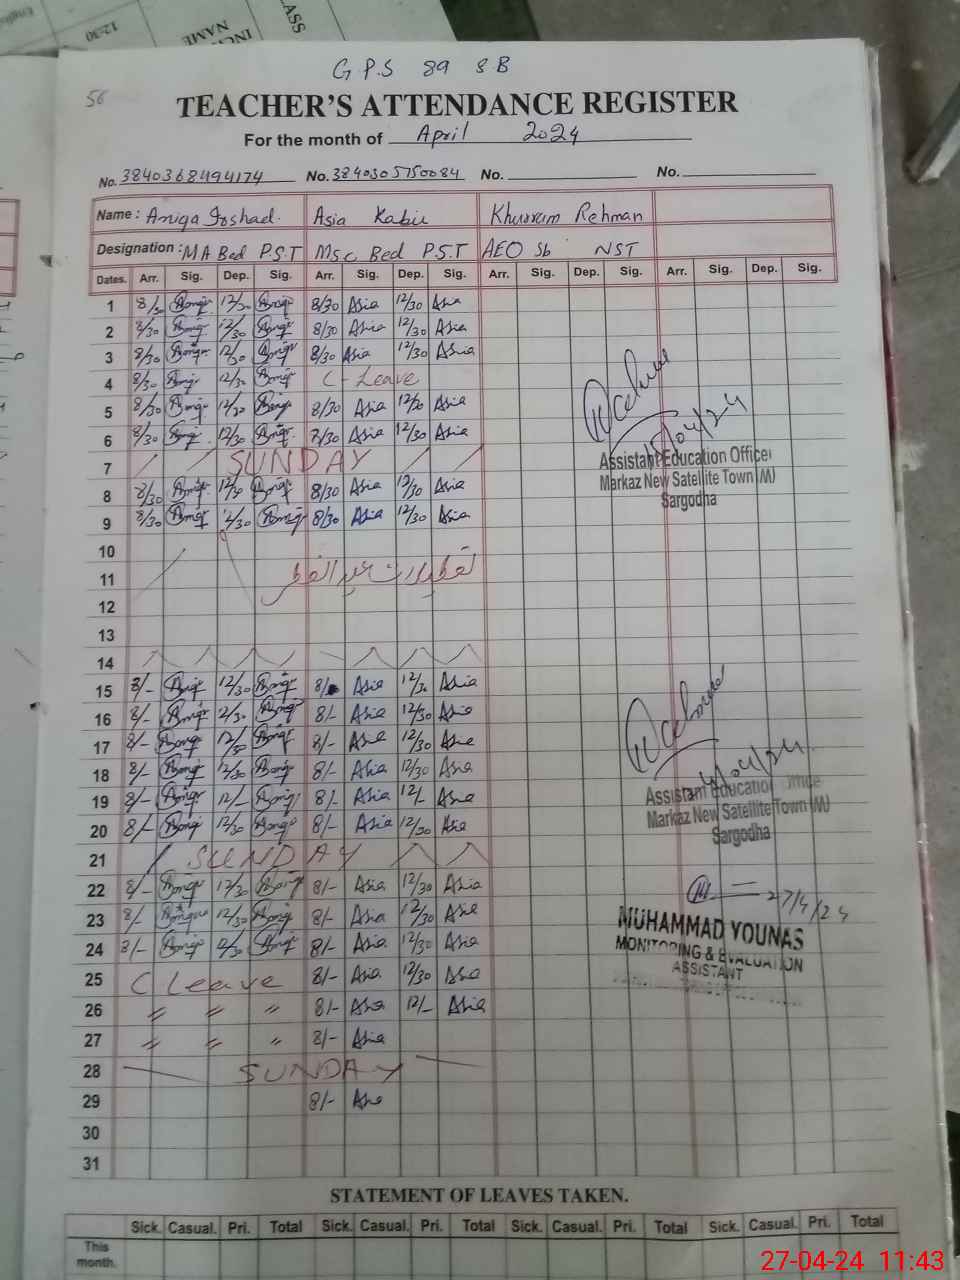 12:30
NAME
CLASS
G.P.S 89 SB
56
TEACHER'S ATTENDANCE REGISTER
For the month of April 2024
No. 3840368494174 No. 3840305750084 No. No.
Name : Aniqa Irshad. Asia Kabir Khurram Rehman
Designation : MA Bed P.S.T MSc Bed P.S.T AEO Sb NST
Dates. Arr. Sig. Dep. Sig. Arr. Sig. Dep. Sig. Arr. Sig. Dep. Sig. Arr. Sig. Dep. Sig.
1 8/30 12/30 8/30 Asia 12/30 Asia
2 8/30 12/30 8/30 Asia 12/30 Asia
3 8/30 12/30 8/30 Asia 12/30 Asia
4 8/30 12/30 C-Leave
5 8/30 12/30 8/30 Asia 12/30 Asia
6 8/30 12/30 7/30 Asia 12/30 Asia
7 SUNDAY
Assistant Education Officer
Markaz New Satellite Town (M)
Sargodha
8 8/30 12/30 8/30 Asia 12/30 Asia
9 8/30 12/30 8/30 Asia 12/30 Asia
10
11 تعطیلات عید الفطر
12
13
14
15 8/- 12/30 8/- Asia 12/30 Asia
16 8/- 12/30 8/- Asia 12/30 Asia
17 8/- 12/30 8/- Asia 12/30 Asia
18 8/- 12/30 8/- Asia 12/30 Asia
19 8/- 12/- 8/- Asia 12/- Asia
20 8/- 12/30 8/- Asia 12/30 Asia
Assistant Education Office
Markaz New Satellite Town (M)
Sargodha
21 SUNDAY
22 8/- 12/30 8/- Asia 12/30 Asia
27/4/24
23 8/- 12/30 8/- Asia 12/30 Asia
24 8/- 12/30 8/- Asia 12/30 Asia
MUHAMMAD YOUNAS
MONITORING & EVALUATION
ASSISTANT
25 C Leave 8/- Asia 12/30 Asia
26 〃 〃 〃 8/- Asia 12/- Asia
27 〃 〃 〃 8/- Asia
28 SUNDAY
29 8/- Asia
30
31
STATEMENT OF LEAVES TAKEN.
Sick. Casual. Pri. Total Sick. Casual. Pri. Total Sick. Casual. Pri. Total Sick. Casual. Pri. Total
This
month.
27-04-24 11:43